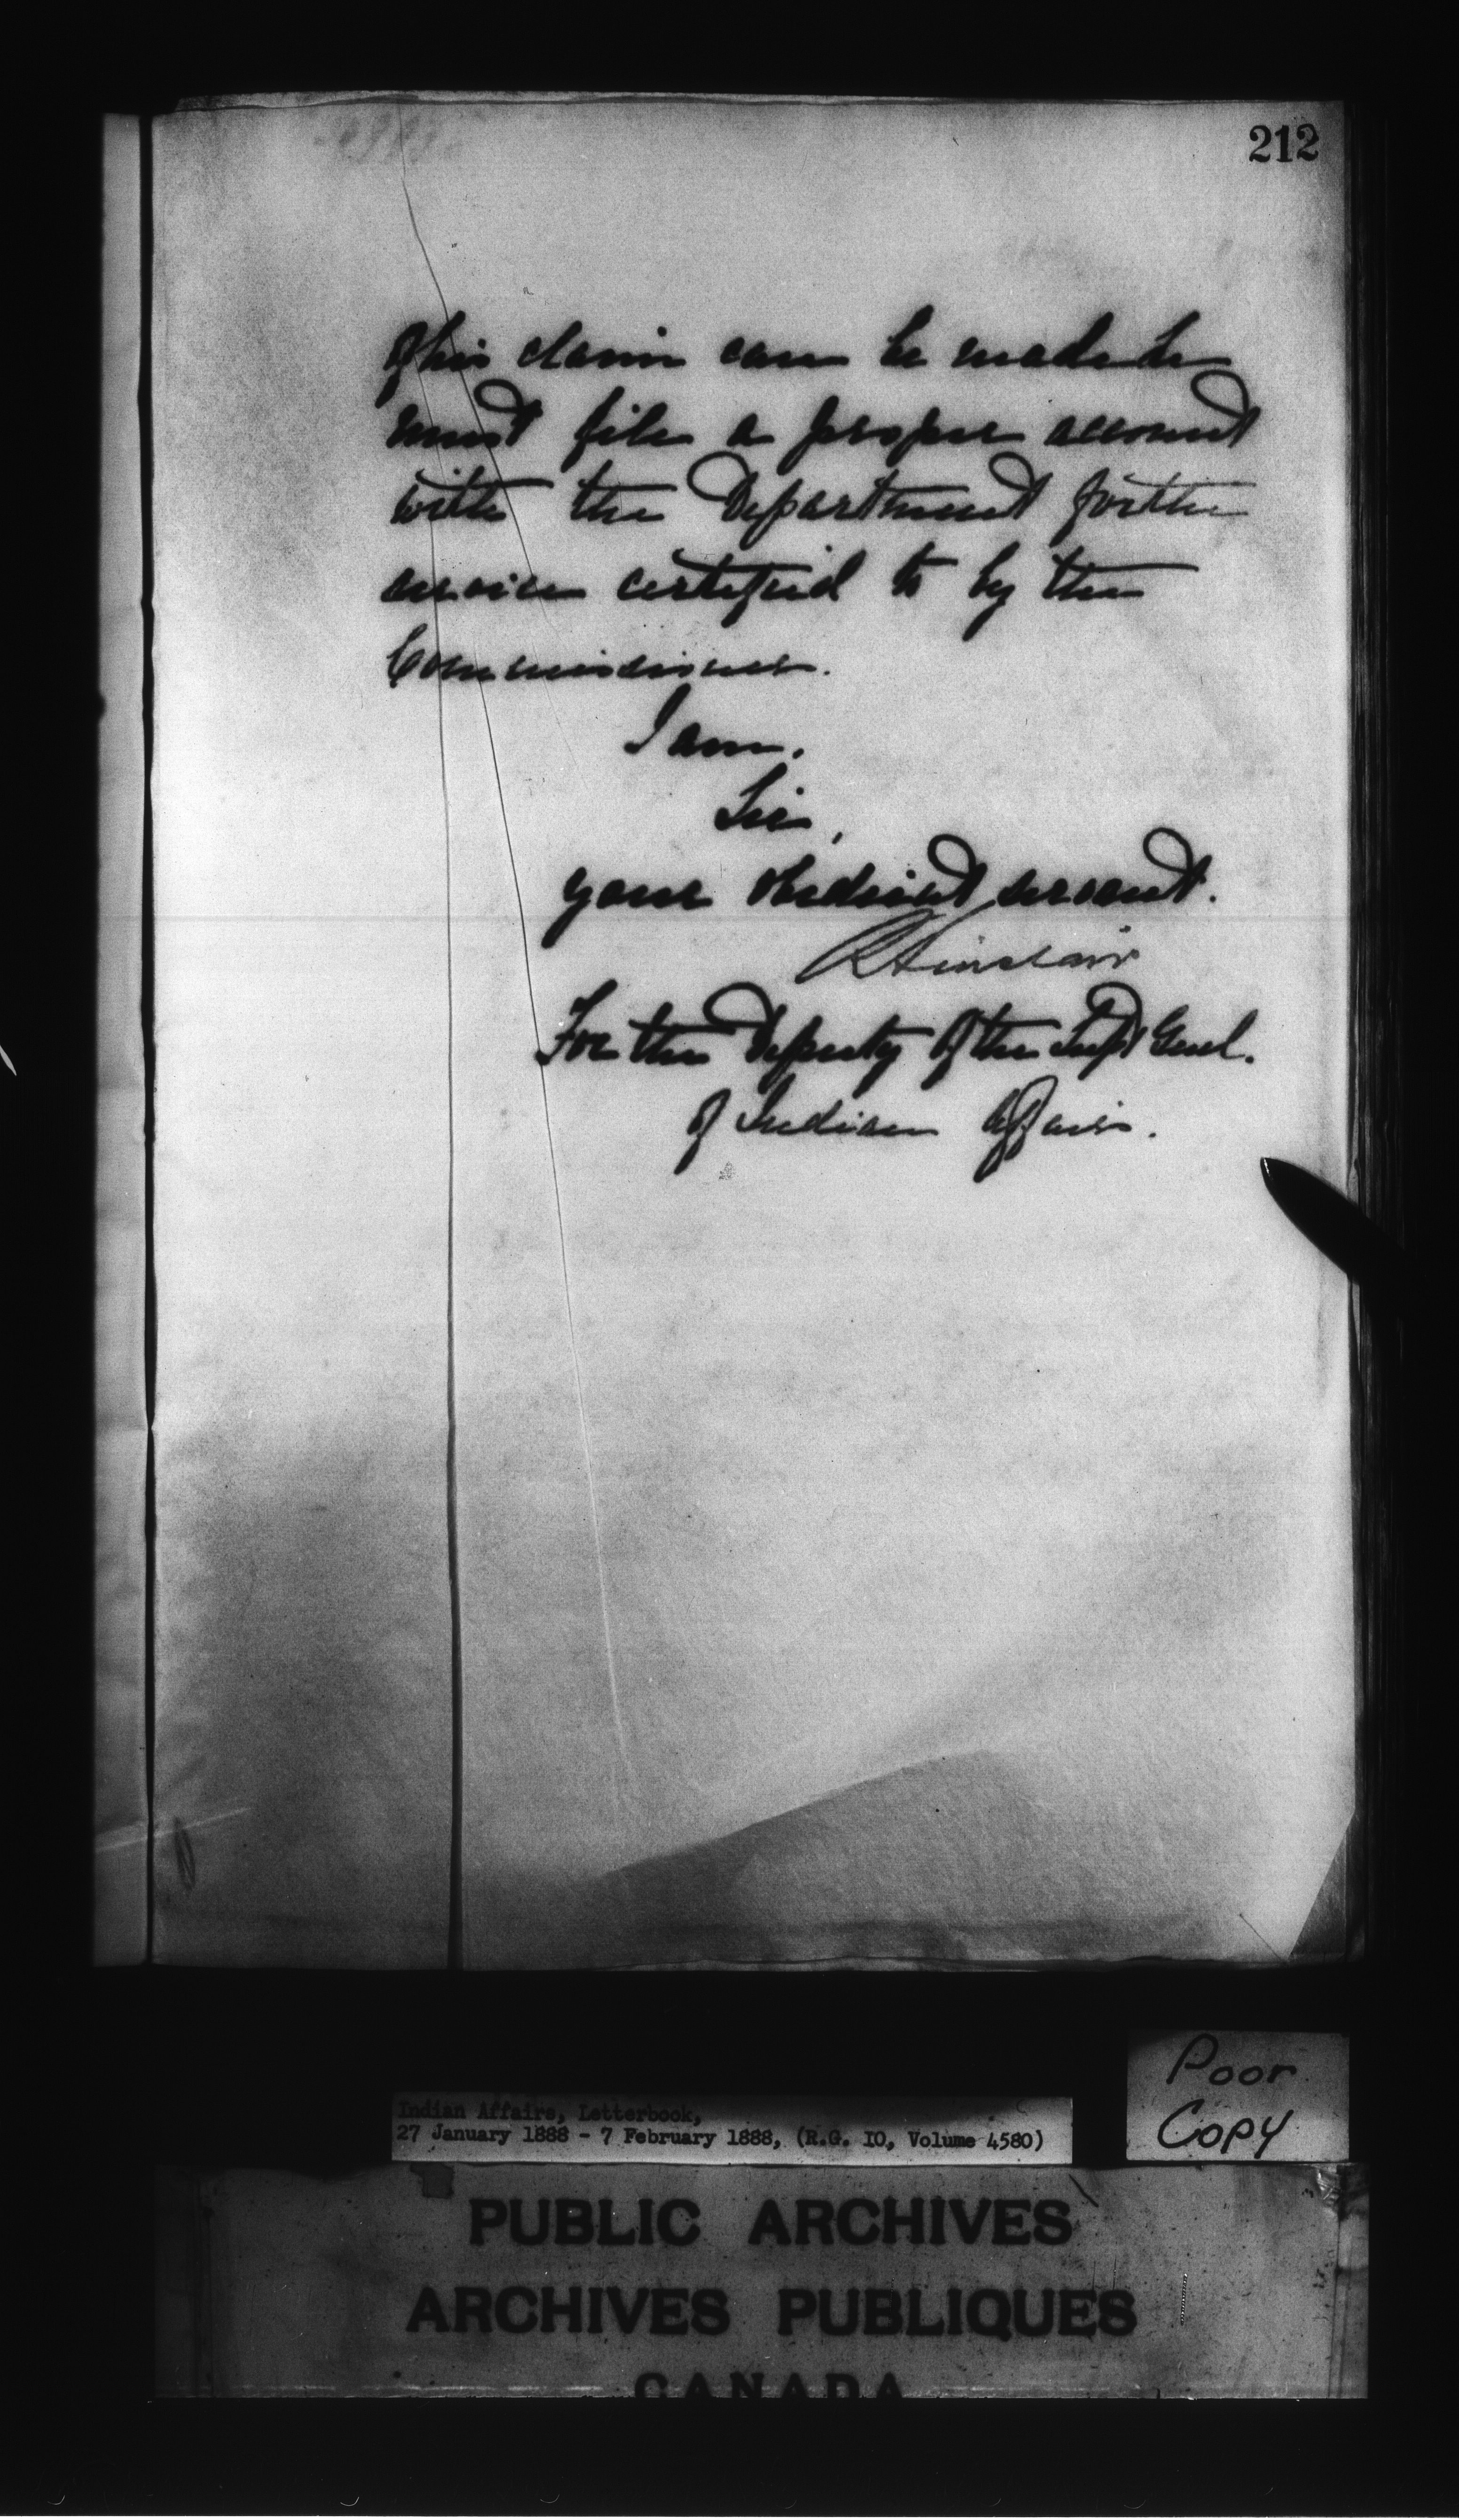 212
of his claim can be made he
must file a proper account
with the Department for the
service certified to by the
Commissioner.
I am,
Sir,
your obedient servant.
R Sinclair
For the Deputy of the Supt Genl.
of Indian Affairs.
Poor
Copy
Indian Affairs, Letterbook,
27 January 1888 - 7 February 1888, (R.G. 10, Volume 4580)
PUBLIC ARCHIVES
ARCHIVES PUBLIQUES
CANADA